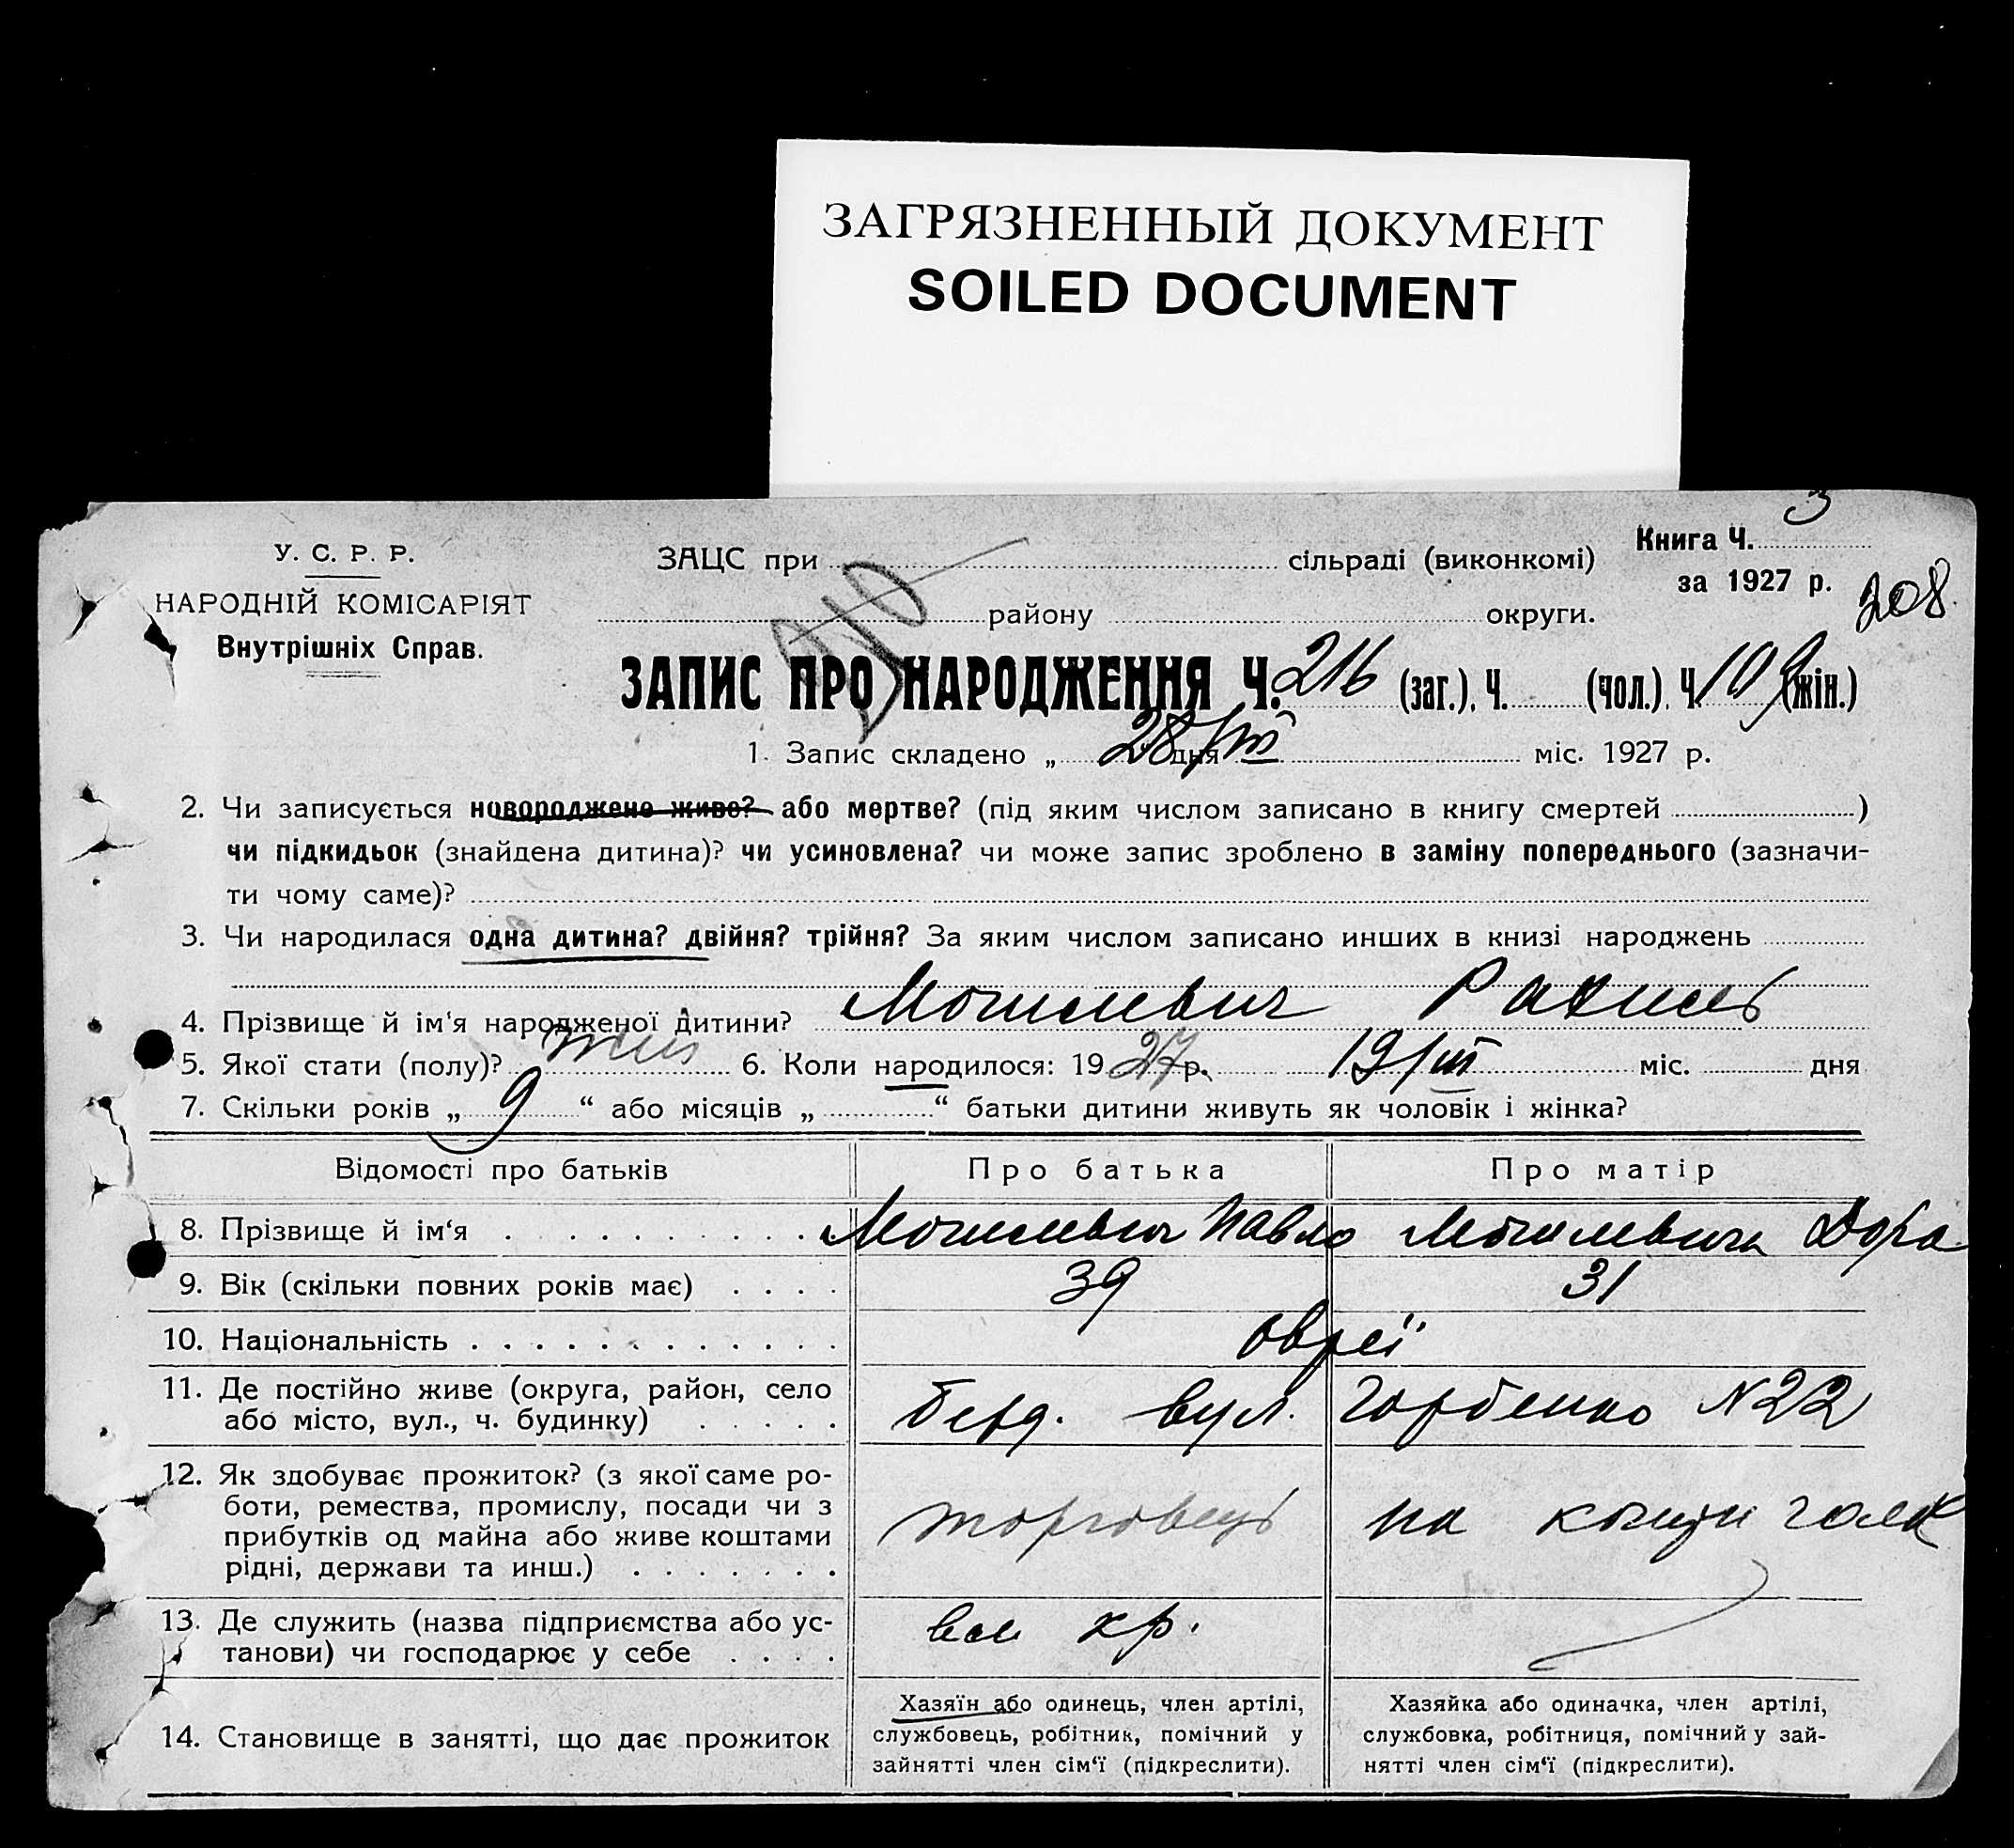 ЗАГРЯЗНЕННЫЙ ДОКУМЕНТ
SOILED DOCUMENT
У. С. Р. Р.
НАРОДНІЙ КОМІСАРІЯТ
Внутрішніх Справ.
ЗАЦС при сільраді (виконкомі)
району округи.
Книга Ч. 3
за 1927 р.
208
ЗАПИС ПРО НАРОДЖЕННЯ Ч. 216 (заг.), Ч. (чол.). Ч. 109 (жін.)
1. Запис складено „ 28 дня /III міс. 1927 р.
2. Чи записується новороджене живе? або мертве? (під яким числом записано в книгу смертей )
чи підкидьок (знайдена дитина)? чи усиновлена? чи може запис зроблено в заміну попереднього (зазначи-
ти чому саме)?
3. Чи народилася одна дитина? двійня? трійня? За яким числом записано инших в книзі народжень
4. Прізвище й ім'я народженої дитини? Могилевич Рахиль
5. Якої стати (полу)? жін 6. Коли народилося: 19 27 р. 19/III міс. дня
7. Скільки років „ 9 “ або місяців „ “ батьки дитини живуть як чоловік і жінка?
Відомості про батьків Про батька Про матір
8. Прізвище й ім‘я Могилевич Павло Могилевич Дора
9. Вік (скільки повних років має) 39 31
10. Національність євреї
11. Де постійно живе (округа, район, село
або місто, вул., ч. будинку)
Берд. вул. Горбенко N 22
12. Як здобуває прожиток? (з якої саме ро-
боти, ремества, промислу, посади чи з
прибутків од майна або живе коштами
рідні, держави та инш.)
торговець на кошти чолов
13. Де служить (назва підприємства або ус-
танови) чи господарює у себе
хр.
14. Становище в занятті, що дає прожиток
Хазяїн або одинець, член артілі,
службовець, робітник, помічний у
зайнятті член сім‘ї (підкреслити).
Хазяйка або одиначка, член артілі,
службовка, робітниця, помічний у зай-
нятті член сім‘ї (підкреслити).